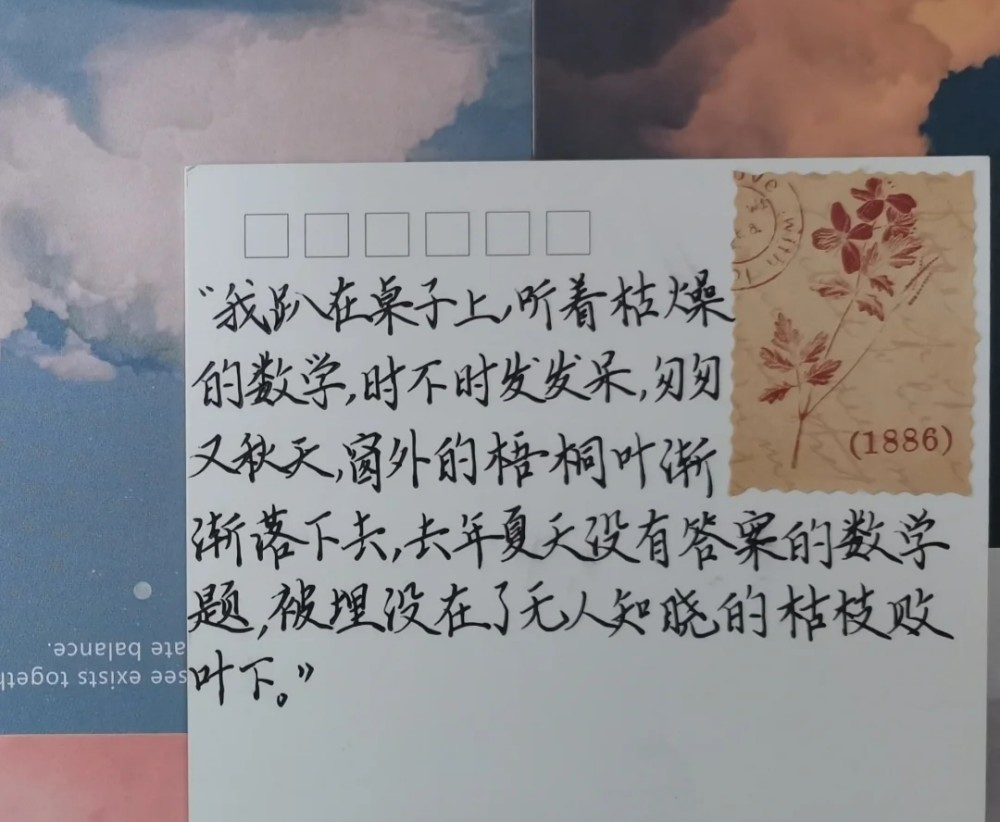 “我趴在桌子上,听着枯燥
的数学,时不时发发呆,匆匆
又秋天,窗外的梧桐叶渐
渐落下去,去年夏天没有答案的数学
题,被埋没在了无人知晓的枯枝败
叶下。”
(1886)
with
ate balance.
see exists togeth